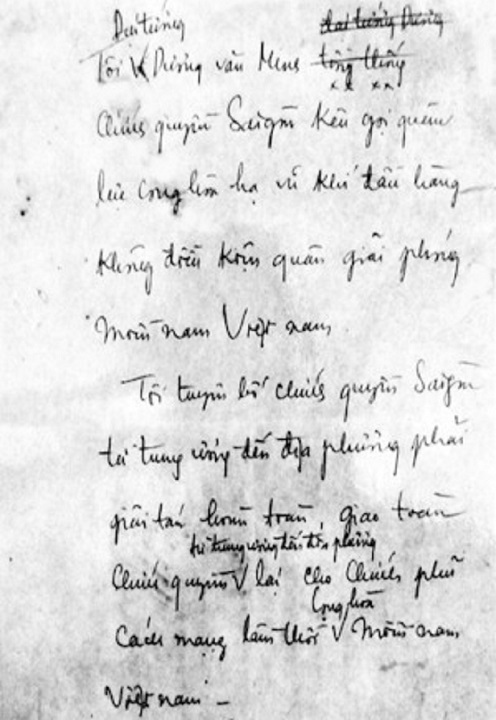 Đại tướng đại tướng Dương
Tôi V Dương văn Minh tổng thống
x x x x
Chính quyền Saigon kêu gọi quân
lực cộng hòa hạ vũ khí đầu hàng
không điều kiện quân giải phóng
miền nam Việt nam
Tôi tuyên bố chính quyền Saigon
từ trung ương đến địa phương phải
giải tán hoàn toàn, giao toàn
từ trung ương đến địa phương
Chính quyền V lại cho Chính phủ
Cộng hòa
Cách mạng lâm thời V miền nam
Việt nam –